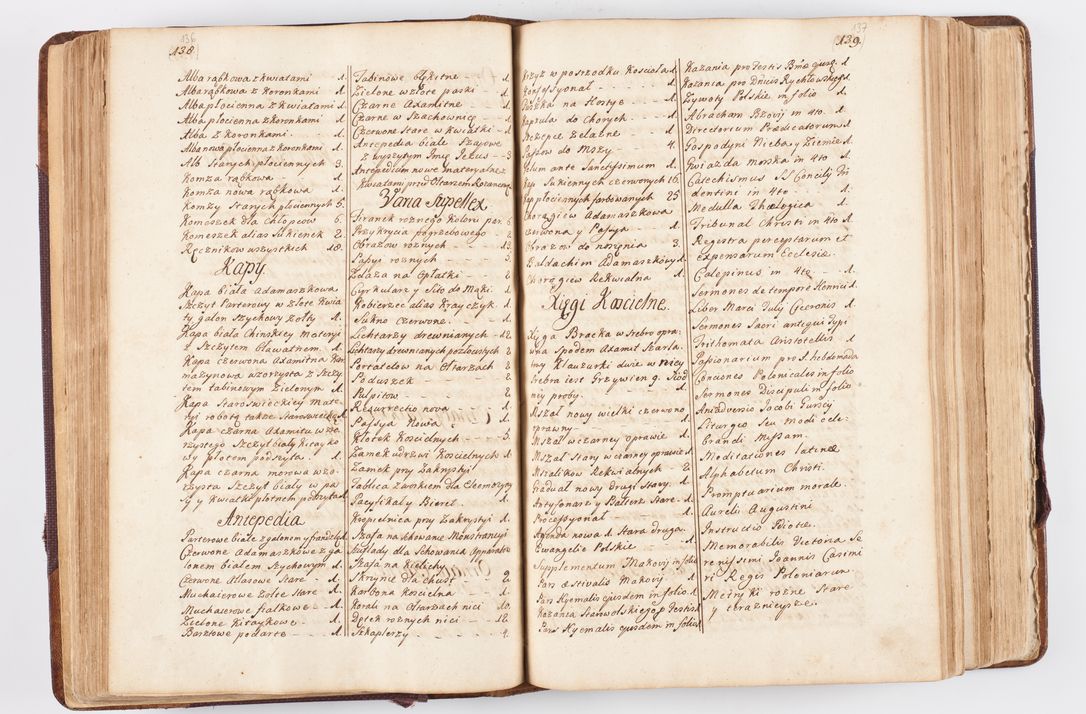 136
138.
Alba rąbkowa z kwiatami 1.
Alba rąbkowa z koronkami 1.
Alba płocienna z kwiatami 1.
Alba płocienna z koronkami 1.
Alba z koronkami 1.
Alba nowa płocienna z koronkami 1.
Alb starych płociennych 3.
Komża rąbkowa 1.
Komża nowa rąbkowa 1.
Komży starych płociennych 5.
Komeszek dla Chłopców 6.
Komeszek alias Sukienek 2.
Ręcznikow wszystkich 18.
Kapy.
Kapa biała Adamaszkowa
Szczyt Parterowy w złote kwia
ty galon szychowy żołty 1.
Kapa biała Chinskiey materyi
z Szczytem bławatnem 1.
Kapa czerwona Adamitna
mazynowa wzorzysta z Szczy
tem tabinowym zielonym 1.
Kapa Staroswieckiey mate
ryi robotą także Staroswiecką 1.
Kapa czarna Adamitu wzo
rzystego Szczyt biały kitayko
wy płotem podszyta 1.
Kapa czarna morowa wzo
rzysta Szczyt biały w pa
sy y kwiatki płotnem podszyta 1.
Antepedia
Parterowe białe z galonem y frandzlą 1.
Czerwone Adamaszkowe z ga
lonem białem Szychowym 1.
Czerwone Atłasowe stare 1.
Muchaierowe żołte stare 1.
Muchaierowe fiałkowe 1.
Zielone Kitaykowe 1.
Borsztowe podarte 1.
Tabinowe błękitne 1.
Zielone w złote paski 1.
Czarne Adamitne 1.
Czarne w Szachownicę 1.
Czerwone stare w kwiatki 1.
Antepedia białe Szajowe
z wyszytym Imię Jezus 3.
Antepedium nowe materialne z
kwiatami przed Ołtarzem Rożancowę
Varia Supellex.
Firanek rożnego koloru par. 6.
Przykrycia pogrzebowego 2.
Obrazow rożnych 13.
Passyi rożnych 3.
na Opłatki 2.
Cyrkularz y Sito do Mąki 1.
Kobierzec alias Krayczyk 1.
Sukno czerwone 1.
Lichtarzy drewnianych 12.
Lichtarzy drewnianych pozłocistych 2.
Portatelow na Ołtarzach 2.
Poduszek 2.
Pulpitow 2.
Resurrectio nowa 1.
Passya Nowa 1.
Kłotek Koscielnych 3.
Zamek u drzwi Koscielnych 1.
Zamek przy Zakrystyi
Tablica z workiem dla Elemozyny
Pacyfikały Bierel.
Kropielnica przy Zakrystyi 1.
Szafa na schowanie Monstrancyi
Szuflady dla Schowania Apparatow
Szafa na Kielichy
Skrynie dla chust 2.
Karbona Koscielna 1.
Korali na Ołtarzach nici 10.
Pętek rożnych nici 12.
Szkaplerzy 4.
137
139.
Krzyż w posrzodku Kosciola 1.
Konfessyonał 1.
Puszka na Hostye 1.
Kapsula do Chorych 1.
zelazne 1.
Passow do Mszy 4.
Velum ante Sanctissimum 1.
Kap Sukiennych czerwonych 16.
Kap płociannych farbowanych 25
Chorągiew Adamaszkowa
czerwona y Passya 1.
Obrazow do noszenia 3.
Baldachim Adamaszkowy 1.
Chorągiew Rekwialna 1.
Xięgi Koscielne.
Xięga Bracka w Srebro opra
wna Spodem Adamit Szarla
tny Klauzurki dwie w niey
Srebra iest grzywien 9. Szod
niey proby.
Mszał nowy wielki czerwono
oprawny 1.
Mszał w czarney oprawie 1.
Mszał stary w czarney oprawie 1.
Mszalikow Rekwialnych 2.
Graduał nowy drugi stary 1.
Antyfonarz y Psałterz stare 1.
Processyonał 1.
Agenda nowa 1. stara druga.
Ewangelie Polskie 1.
Supplementum Makowii in folio
Pars Æstivalis Makovij 1.
Pars Hyemalis ejusdem in folio 1.
Kazania Starowolskiego p Festis 1.
Pars Hyemalis ejusdem in folio 1.
Kazania pro Festis Bmæ 1.
Kazania pro Dnicis Rychłowskiego 1.
Zywoty Polskie in folio 1.
Abracham Bzovij in 4to. 1.
Directorium Prædicatorum 1.
Gospodyni Nieba y Ziemie 1.
Gwiazda morska in 4to 1.
Catechismus SS Concilij Tri
dentini in 4to 1.
Medulla Theologica 1.
Tribunal Christi in 4to 1.
Regestra perceptarum et
expensarum Ecclesiæ.
Calepinus in 4to 1.
Sermones de tempore 1.
Liber Marci Tulij Ciceronis 1.
Sermones Sacri antiqui typi
Trithomata Aristotellis 1.
Passionarium pro S. hebdomada
Conciones Polonicales in folio
Sermones Discipuli in folio
Anvadversio Jacobi
Liturgeo Seu modi cele-
brandi Missam.
Meditationes latinæ
Alphabetum Christi.
Promptuarium morale.
Aurelii Augustini
Instructio Idiotæ.
Memorabilis Victoria Se
renissimi Joannis Casimi
ri Regis Poloniarum
Metryki rożne stare
y teraznieysze.